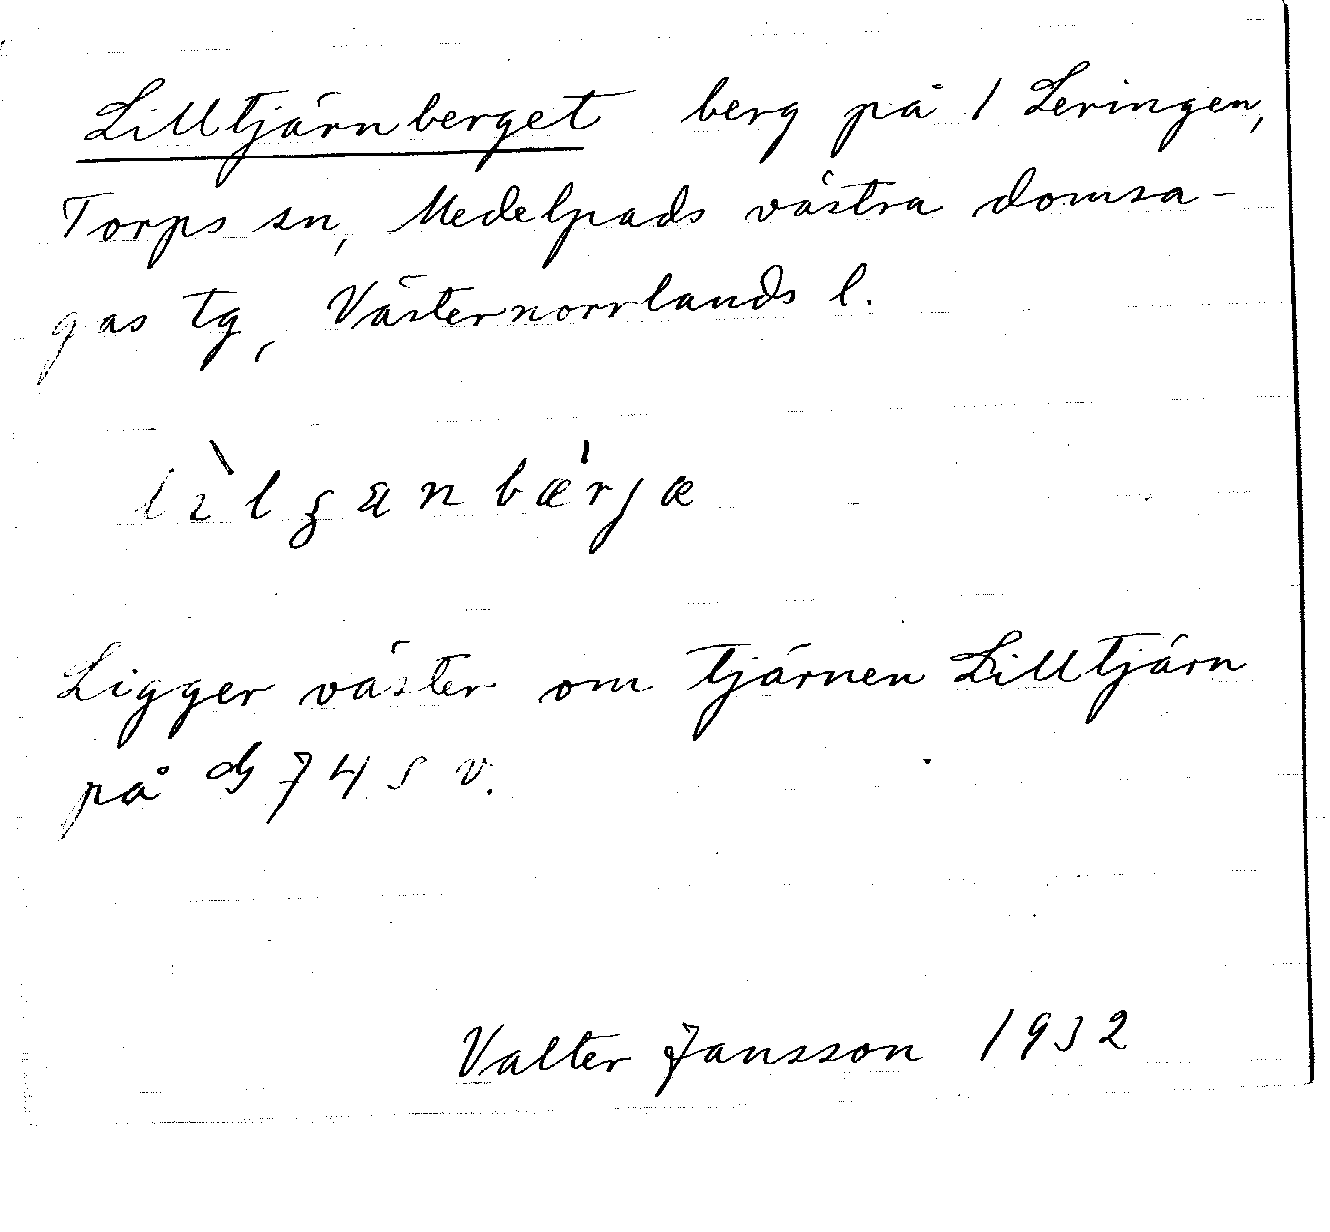 Lilltjärnberget berg på 1 Leringen,
Torps sn, Medelpads västra domsa-
gas tg, Västernorrlands l.
Ligger väster om tjärnen Lilltjärn
på 74 S v.
Valter Jansson 1932